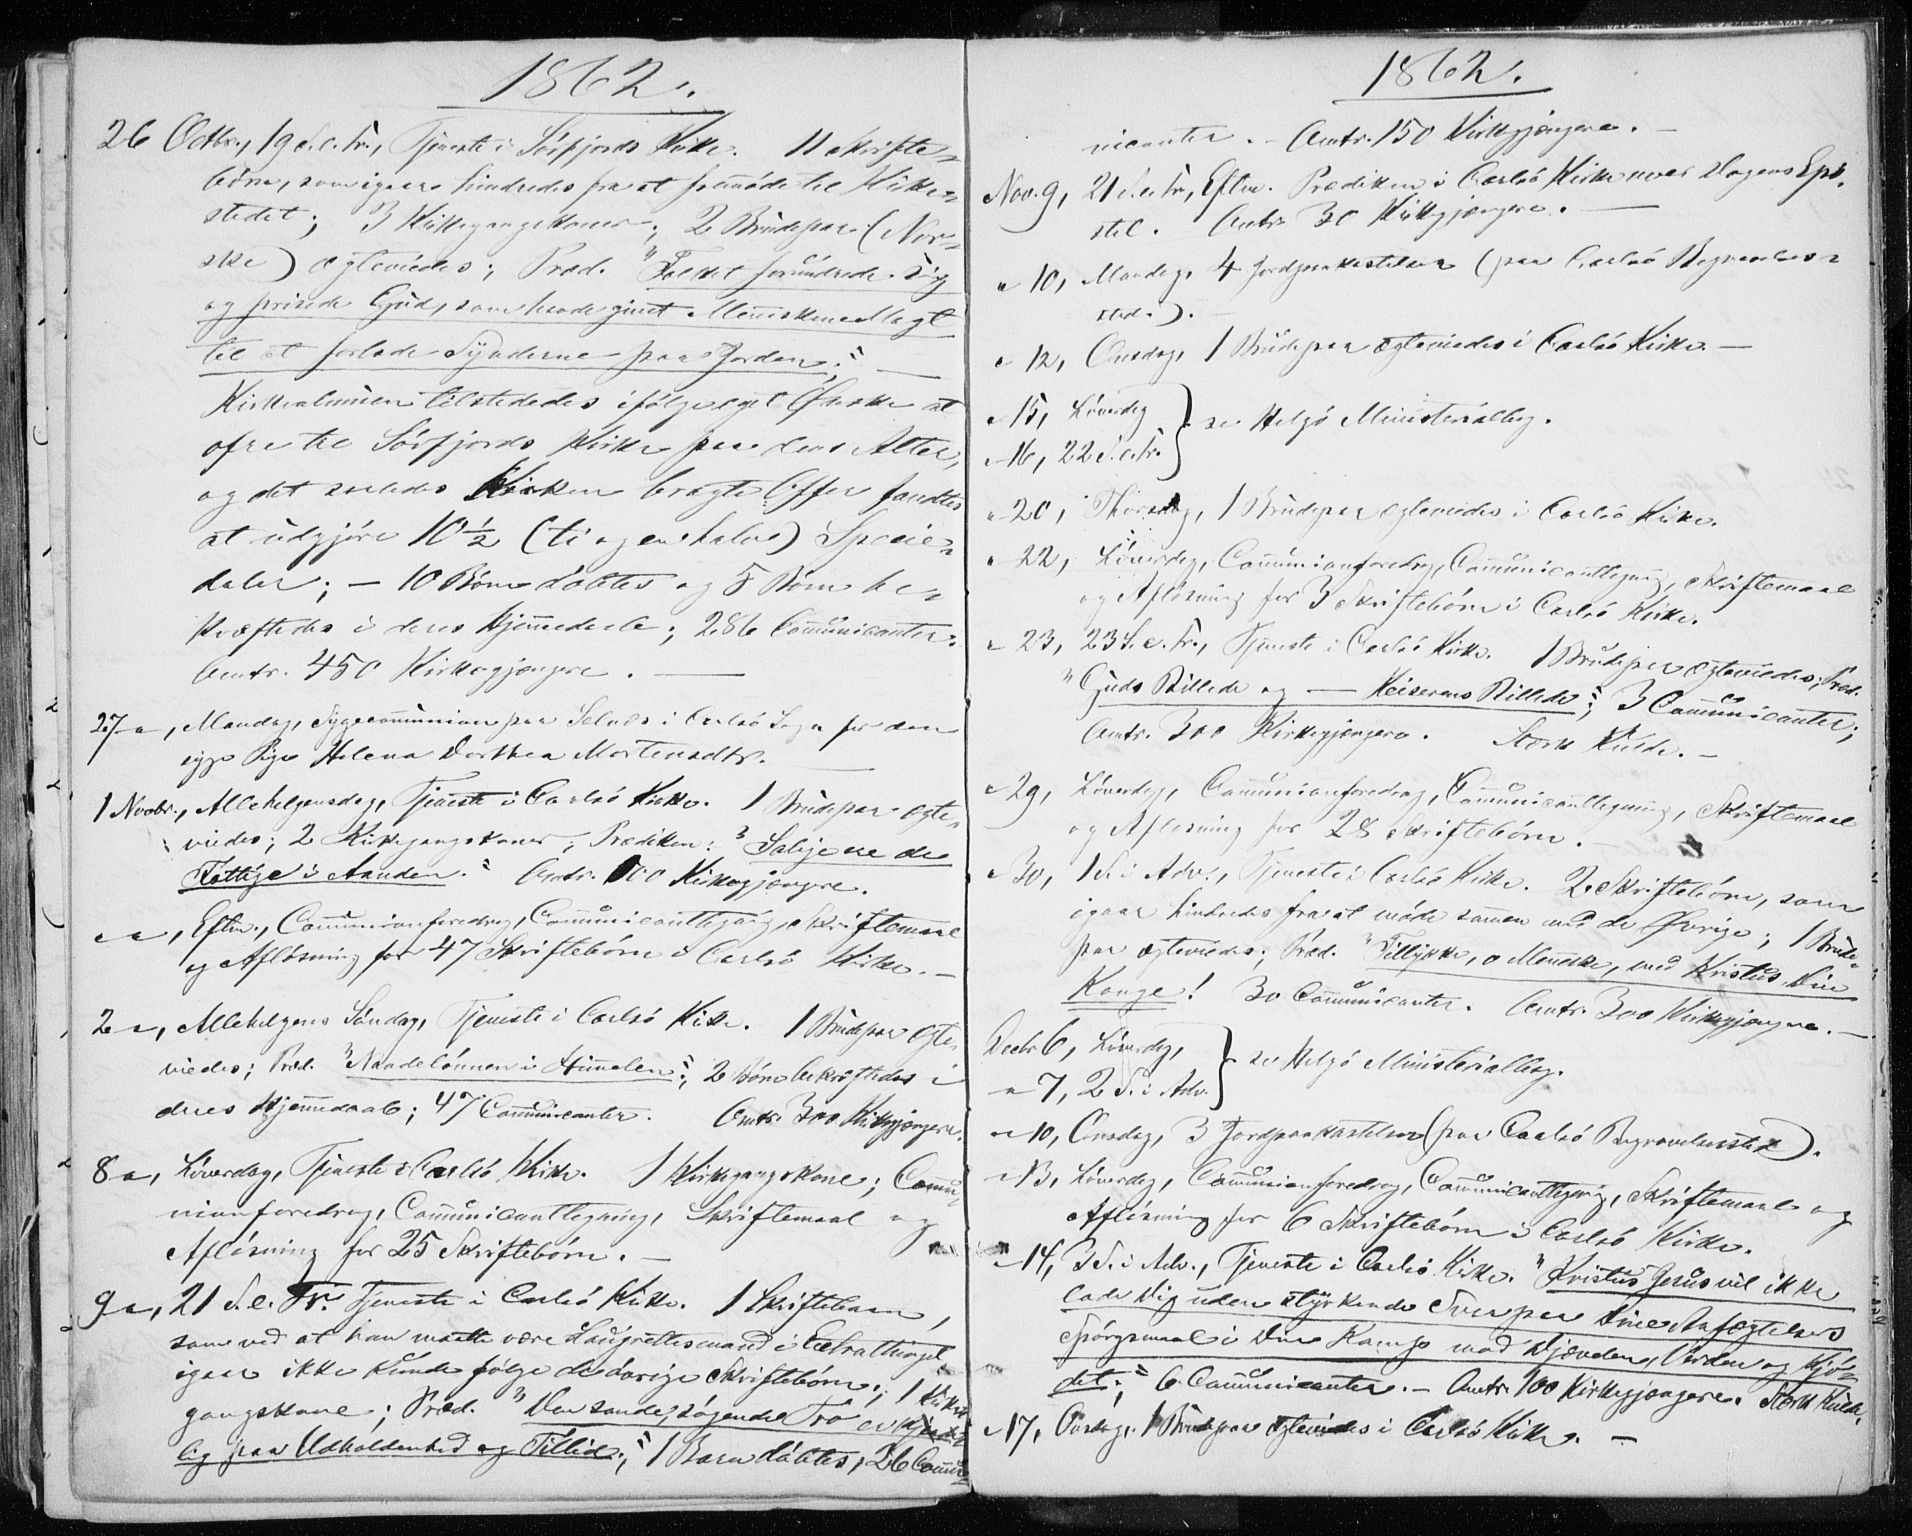 1862.
26 Octbr., 19 S. e. Tr., Tjeneste i Sörfjords Kirke. 11 Skrifte-
börn, som igaar hindredes fra at fremmöde til Kirke-
stedet; 3 Kirkegangskoner; 2 Brudepar (Nor-
ske) ægteviedes; Præd. "Folket forundrede sig
og prisede Gud, som havde givet Menneskene Magt
til at forlade Synderne paa Jorden;"
Kirkealmuen tilstededes ifölge eget Önske at
ofre til Sörfjords Kirke paa dens Alter,
og det saaledes Kirken bragte Offer fandtes
at udgjöre 10½ (ti og en halv) Specie-
daler; – 10 Börn döbtes og 5 Börn be-
kræftedes i deres Hjemmedaab; 286 Communicanter.
Omtr. 450 Kirkegjængere.
27 –, Mandag, Sygecommunion paa Selnes i Carlsö Sogn for den
syge Pige Helena Dorthea Mortensdtr.
1 Novbr., Allehelgensdag, Tjeneste i Carlsö Kirke. 1 Brudepar ægte-
viedes; 2 Kirkegangskoner; Prædiken: "Salige ere de
Fattige i Aanden." Omtr. 100 Kirkegjængere.
– –, Efterm., Communionforedrag, Communicanttegning, Skriftemaal
og Aflösning for 47 Skriftebörn i Carlsö Kirke. –
2 –, Allehelgens Söndag, Tjeneste i Carlsö Kirke. 1 Brudepar ægte-
viedes; Præd. "Naadelönnen i Himmelen;" 2 Börn bekræftedes i
deres Hjemmedaab; 47 Communicanter. Omtr. 300 Kirkegjængere.
8 –, Löverdag, Tjeneste i Carlsö Kirke. 1 Kirkegangskone; Commu-
nionforedrag, Communicanttegning, Skriftemaal og
Aflösning for 25 Skriftebörn. –
9 –, 21 S. e. Tr. Tjeneste i Carlsö Kirke. 1 Skriftebarn,
som ved at han maatte være Laugrettesmand i Extrathinget
igaar ikke kunde fölge de övrige Skriftebörn; 1 Kirke-
gangskone; Præd. "Den sande, sögende Tro er kjende-
lig paa Udholdenhed og Tillid;" 1 Barn döbtes; 26 Commu-
1862.
nicanter. – Omtr. 150 Kirkegjængere. –
Nov. 9, 21 S. e. Tr., Efterm. Prædiken i Carlsö Kirke over Dagens Epi-
stel. Omtr. 30 Kirkegjængere. –
" 10, Mandag, 4 Jordpaakastelser (paa Carlsö Begravelses-
sted.). –
" 12, Onsdag, 1 Brudepar ægteviedes i Carlsö Kirke. –
" 15, Löverdag
" 16, 22 S. e. Tr. } se Helgö Ministerialbog.
" 20, Thorsdag, 1 Brudepar ægteviedes i Carlsö Kirke.
" 22, Löverdag, Communionforedrag, Communicanttegning, Skriftemaal
og Aflösning for 3 Skriftebörn i Carlsö Kirke.
" 23, 23 S. e. Tr., Tjeneste i Carlsö Kirke. 1 Brudepar ægteviedes; Præd.
"Guds Billede og — Keiserens Billede;" 3 Communicanter;
Omtr. 300 Kirkegjængere. Stærk Kulde. –
" 29, Löverdag, Communionforedrag, Communicanttegning, Skriftemaal
og Aflösning for 28 Skriftebörn. –
" 30, 1 S. i Adv., Tjeneste i Carlsö Kirke. 2 Skriftebörn, som
igaar hindredes fra at möde sammen med de Övrige; 1 Brude-
par ægteviedes; Præd. "Tillykke, o Menneske, med Kristus Din
Konge! 30 Communicanter. Omtr. 300 Kirkegjængere. –
Decbr 6, Löverdag,
" 7, 2 S. i Adv. } se Helgö Ministerialbog.
" 10, Onsdag, 3 Jordpaakastelser (paa Carlsö Begravelsessted).
" 13, Löverdag, Communionforedrag, Communicanttegning, Skriftemaal og
Aflösning for 6 Skriftebörn i Carlsö Kirke.
" 14, 3 S. i Adv., Tjeneste i Carlsö Kirke. "Kristus Jesus vil ikke
lade Dig uden styrkende Svar paa Dine Anfægtelsers
Spörgsmaal i Din Kamp mod Djævelen, Verden og Kjö-
det;" 6 Communicanter. – Omtr. 100 Kirkegjængere. Stærk Kulde.
" 17, Onsdag, 1 Brudepar ægteviedes i Carlsö Kirke. –